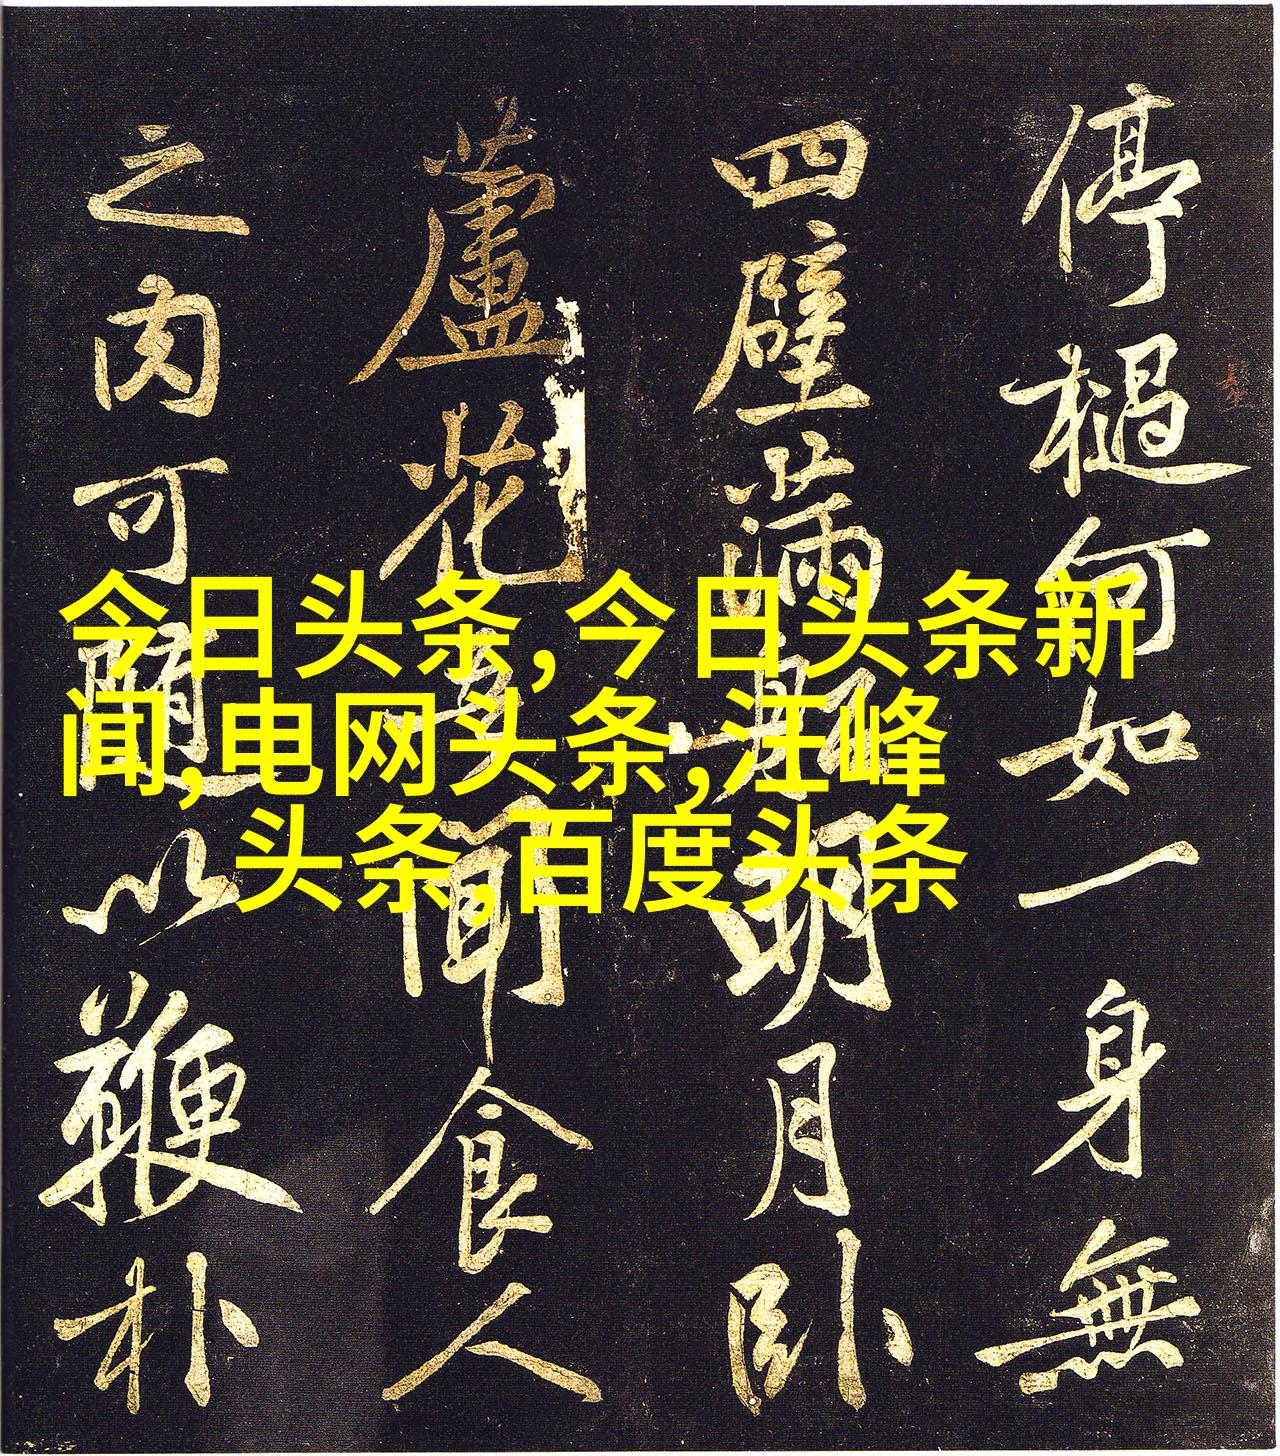 停檛何如一身無
四壁滿船明月臥
蘆花吾聞食人
之肉可隨以鞭朴
今日头条,今日头条新
闻,电网头条,汪峰
头条,百度头条